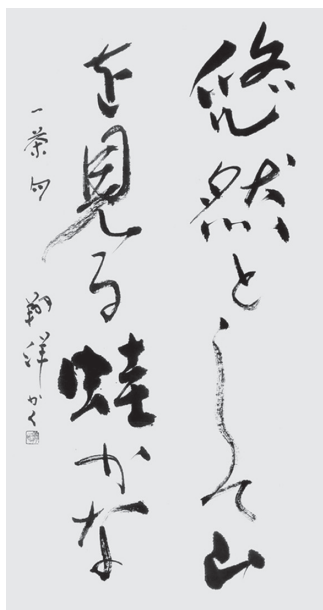 悠然として山
を見る蛙かな
一茶句 翔洋かく